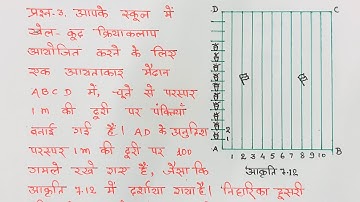 प्रश्न-3. आपके स्कूल में
खेल-कूद क्रियाकलाप
आयोजित करने के लिए
एक आयताकार मैदान
ABCD में, चूने से परस्पर
1m की दूरी पर पंक्तियाँ
बनाई गई हैं। AD के अनुदिश
परस्पर 1m की दूरी पर 100
गमले रखे गए हैं, जैसा कि
आकृति 7.12 में दर्शाया गया है। निहारिका दूसरी
D C
2
1
A B
1 2 3 4 5 6 7 8 9 10
आकृति 7.12